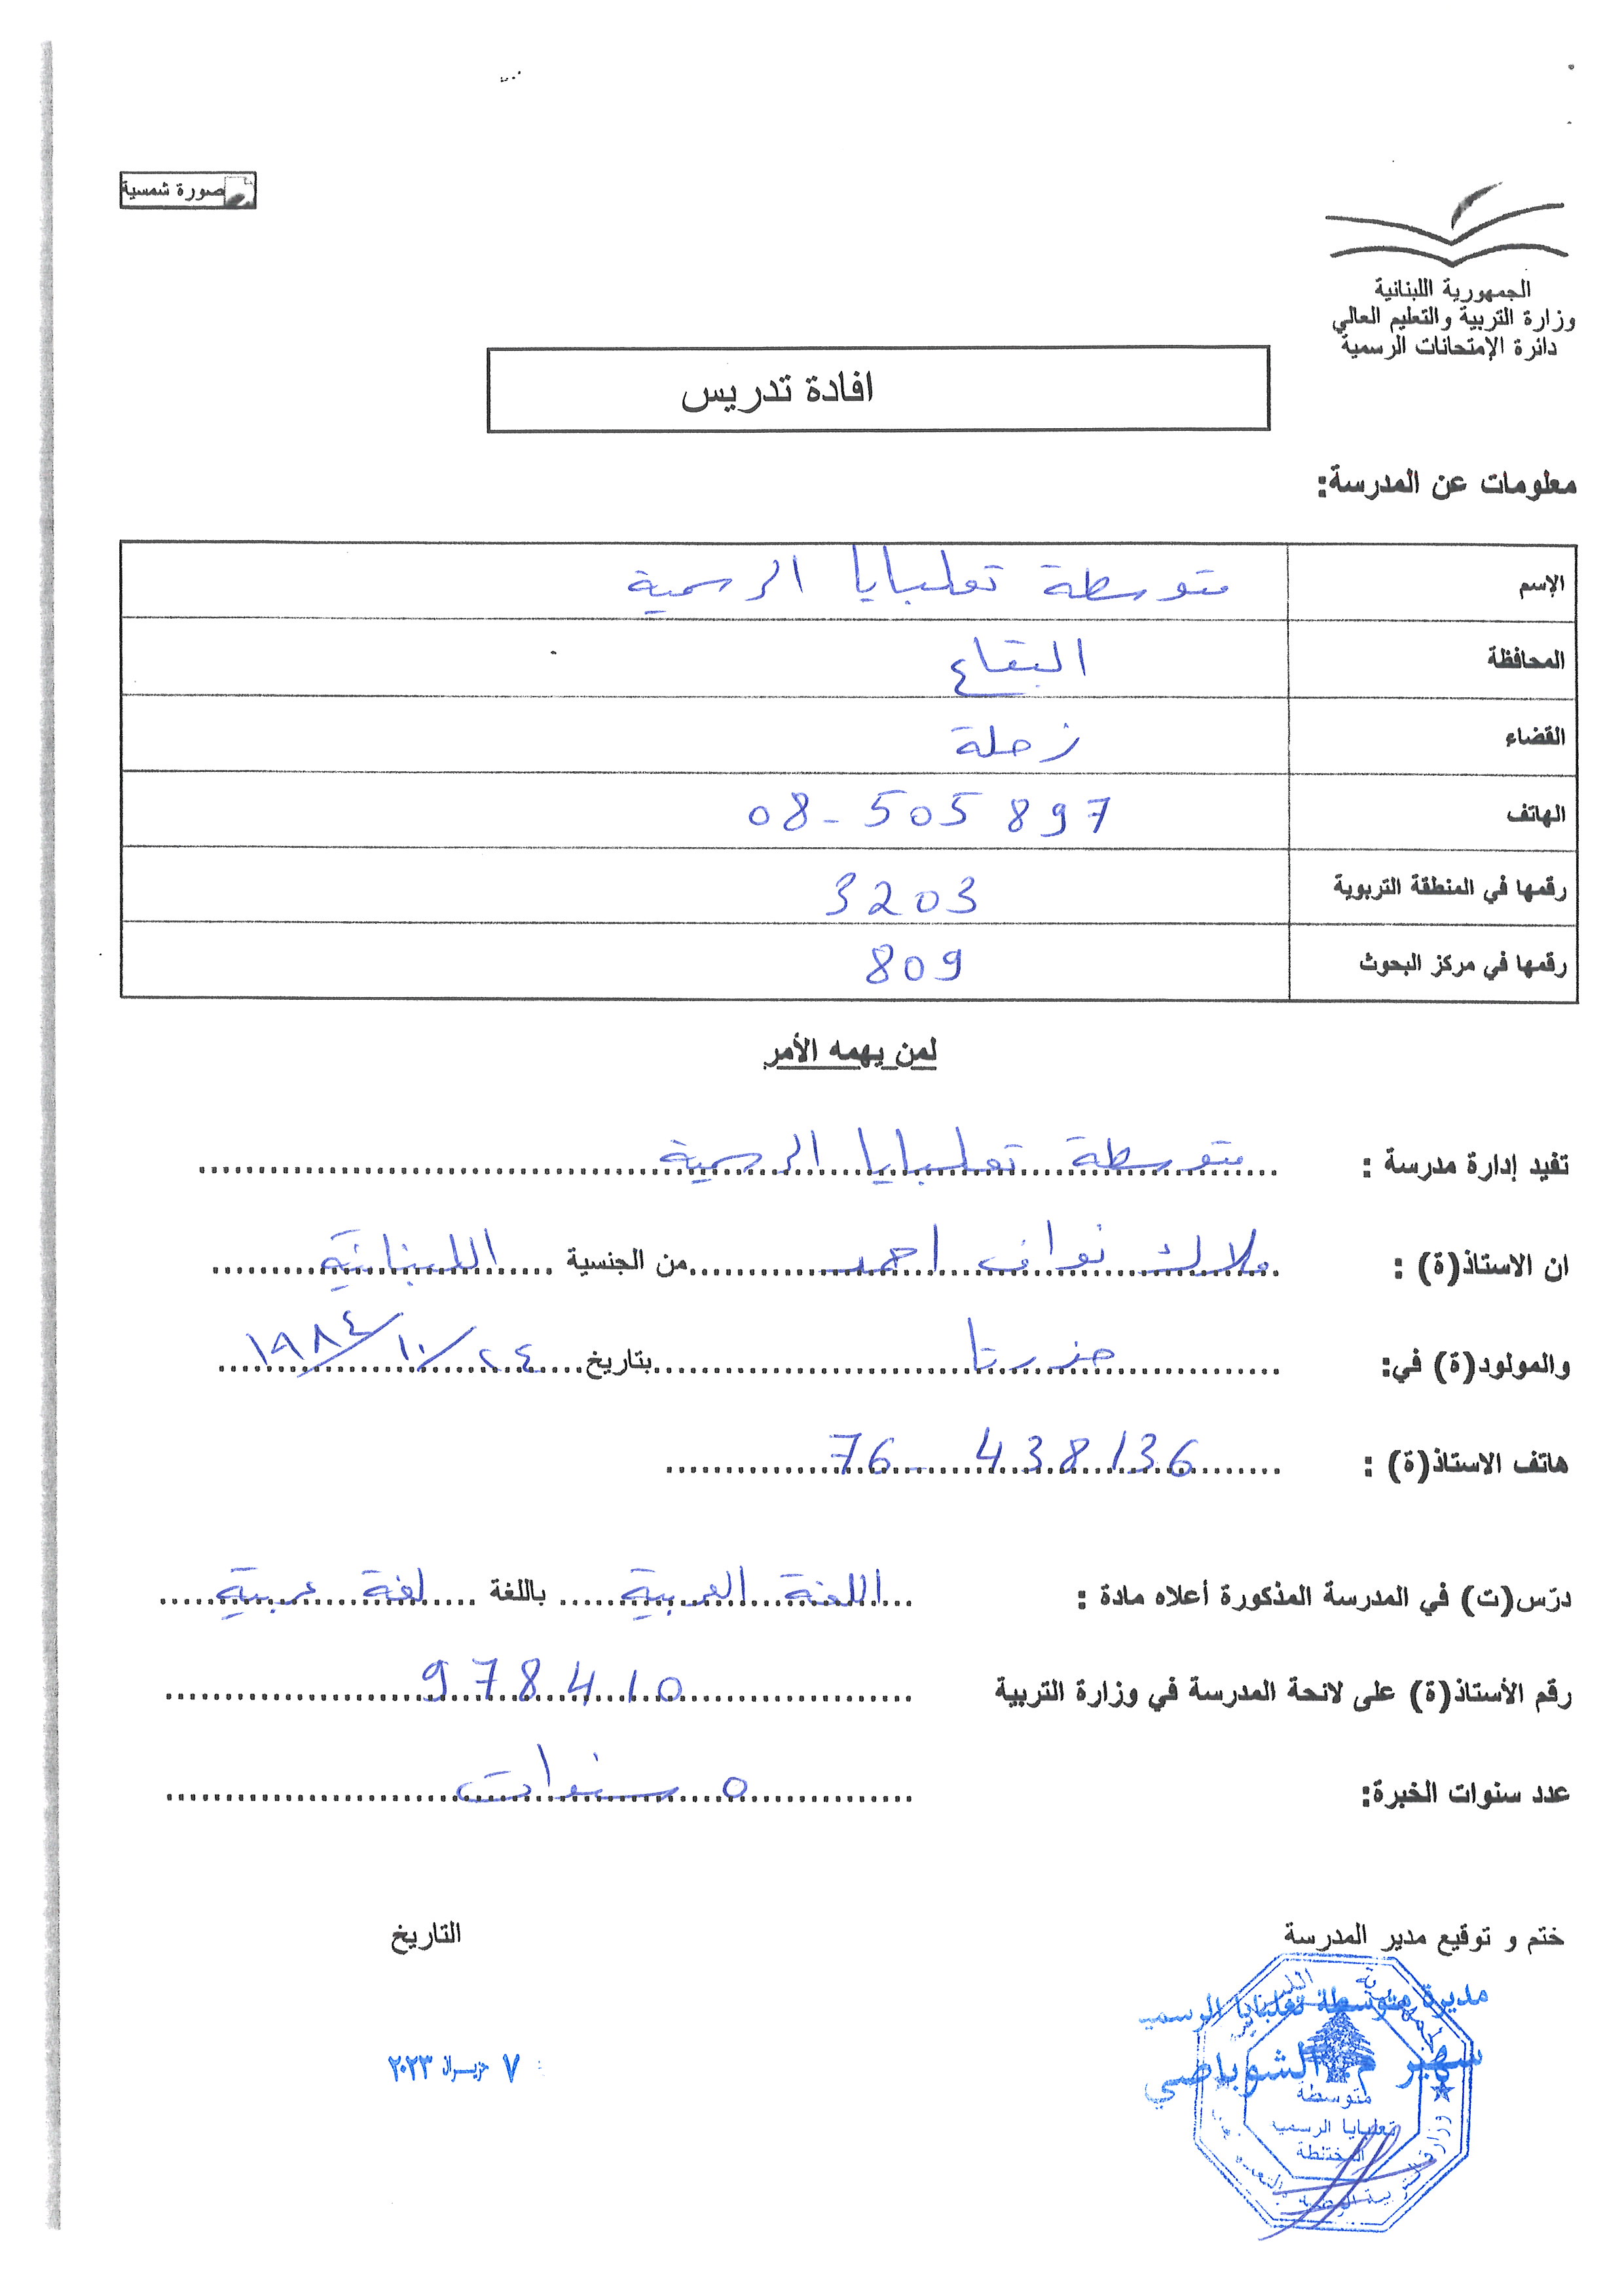 صورة شمسية
الجمهورية اللبنانية
وزارة التربية والتعليم العالي
دائرة الإمتحانات الرسمية
افادة تدريس
معلومات عن المدرسة:
الإسم متوسطة تعلبايا الرسمية
المحافظة البقاع
القضاء زحلة
الهاتف 08-505897
رقمها في المنطقة التربوية 3203
رقمها في مركز البحوث 809
لمن يهمه الأمر
تفيد إدارة مدرسة : متوسطة تعلبايا الرسمية
ان الاستاذ(ة) : ملاك نواف احمد من الجنسية اللبنانية
والمولود(ة) في: حزرتا بتاريخ ٢٤/١٠/١٩٨٤
هاتف الاستاذ(ة) : 76-438136
درّس(ت) في المدرسة المذكورة أعلاه مادة : اللغة العربية باللغة لغة عربية
رقم الأستاذ(ة) على لائحة المدرسة في وزارة التربية 978410
عدد سنوات الخبرة: ٥ سنوات
ختم و توقيع مدير المدرسة
التاريخ
مديرة متوسطة تعلبايا الرسمية
الشوباصي
متوسطة
تعلبايا الرسمية
المختلطة
٧ حزيران ٢٠٢٣